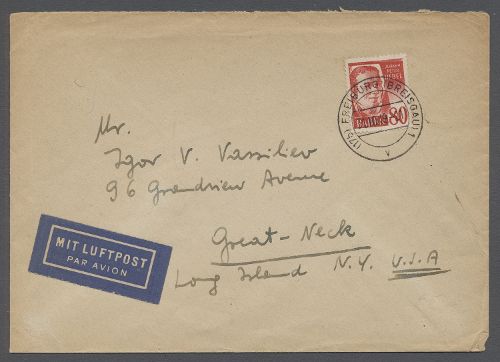 JOHANN
PETER
HEBEL
BADEN 80
(17b) FREIBURG (BREISGAU) 1
v
Mr.
Igor V. Vassiliev
96 Grandview Avenue
Great-Neck
Long Island N.Y. U.S.A
MIT LUFTPOST
PAR AVION